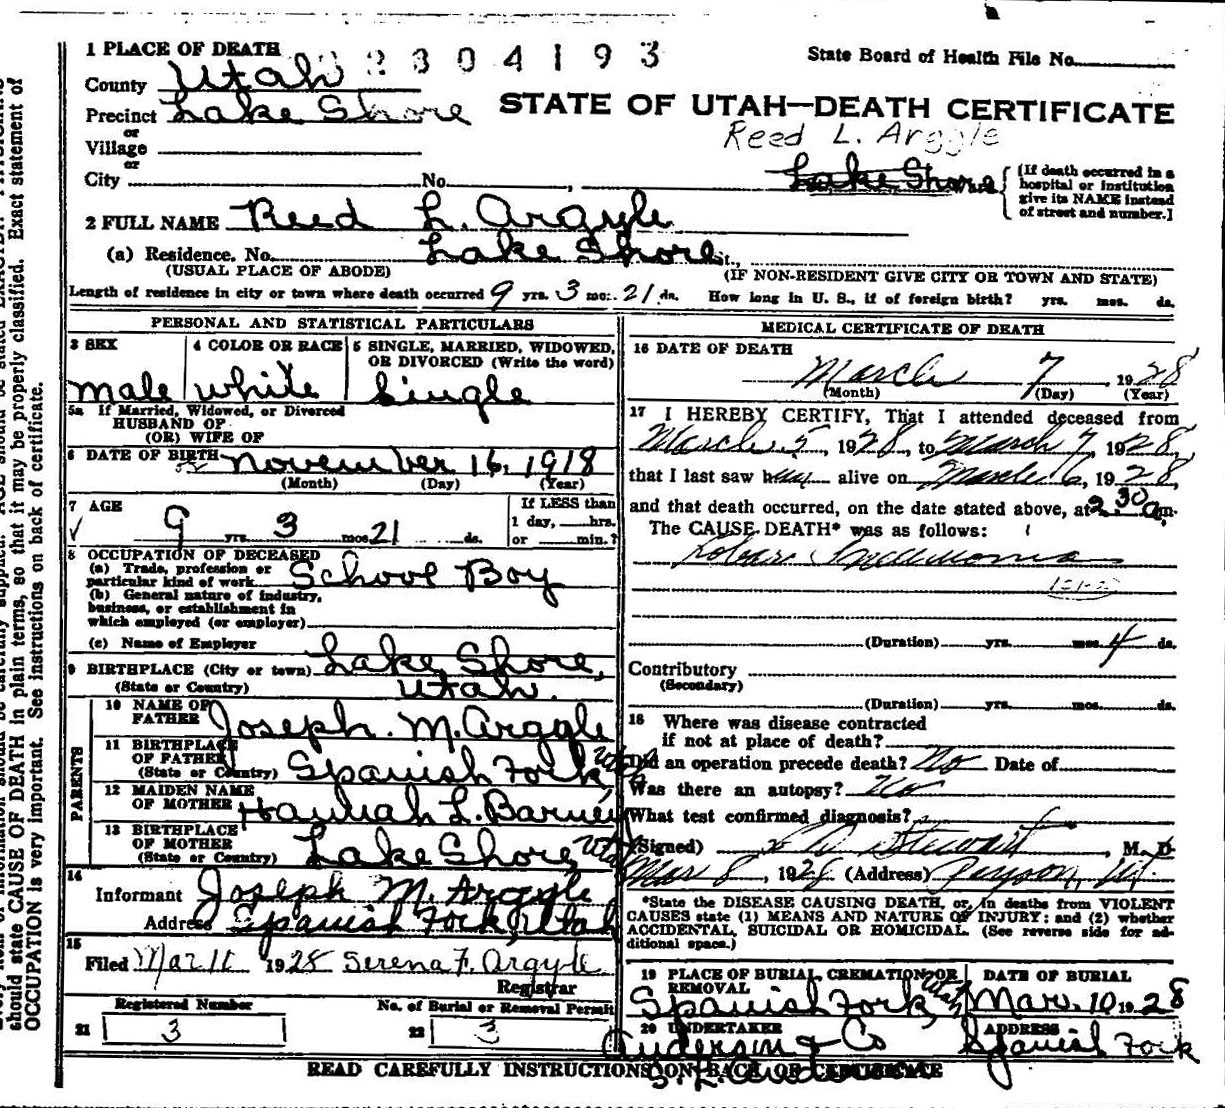 1 PLACE OF DEATH
2304193
State Board of Health File No.
County Utah
STATE OF UTAH—DEATH CERTIFICATE
Precinct Lake Shore
Reed L. Argyle
or
Village
or
City No. , Lake Shore
(If death occurred in a hospital or institution give its NAME instead of street and number.]
2 FULL NAME Reed L. Argyle
(a) Residence. No. Lake Shore St.,
(USUAL PLACE OF ABODE) (IF NON-RESIDENT GIVE CITY OR TOWN AND STATE)
Length of residence in city or town where death occurred 9 yrs. 3 mo. 21 ds. How long in U. S., if of foreign birth? yrs. mos. ds.
PERSONAL AND STATISTICAL PARTICULARS
3 SEX 4 COLOR OR RACE 5 SINGLE, MARRIED, WIDOWED, OR DIVORCED (Write the word)
male white Single
5a If Married, Widowed, or Divorced
HUSBAND OF
(OR) WIFE OF
6 DATE OF BIRTH November 16, 1918
(Month) (Day) (Year)
7 AGE 9 yrs. 3 mos. 21 ds.
If LESS than
1 day, hrs.
or min.?
8 OCCUPATION OF DECEASED
(a) Trade, profession or
particular kind of work School Boy
(b) General nature of industry,
business, or establishment in
which employed (or employer)
(c) Name of Employer
9 BIRTHPLACE (City or town) Lake Shore,
(State or Country) Utah.
PARENTS
10 NAME OF FATHER Joseph M. Argyle
11 BIRTHPLACE OF FATHER
(State or Country) Spanish Fork Utah
12 MAIDEN NAME OF MOTHER Hannah L.
13 BIRTHPLACE OF MOTHER
(State or Country) Lake Shore, Utah
14
Informant Joseph M. Argyle
Address Spanish Fork, Utah
15
Filed Mar 11 1928 Serena F. Argyle
Registrar
Registered Number No. of Burial or Removal Permit
21 3 22 3
MEDICAL CERTIFICATE OF DEATH
16 DATE OF DEATH
March 7, 1928
(Month) (Day) (Year)
17 I HEREBY CERTIFY, That I attended deceased from
March 5, 1928, to March 7, 1928,
that I last saw him alive on March 6, 1928,
and that death occurred, on the date stated above, at 2:30 am.
The CAUSE DEATH* was as follows:
Lobar Pneumonia
(Duration) yrs. mos. 4 ds.
Contributory
(Secondary)
(Duration) yrs. mos. ds.
18 Where was disease contracted
if not at place of death?
Did an operation precede death? No Date of
Was there an autopsy? No
What test confirmed diagnosis?
(Signed) Stewart, M. D.
Mar 8, 1928 (Address) Payson, Ut.
*State the DISEASE CAUSING DEATH, or, in deaths from VIOLENT
CAUSES state (1) MEANS AND NATURE OF INJURY; and (2) whether
ACCIDENTAL, SUICIDAL OR HOMICIDAL. (See reverse side for ad-
ditional space.)
19 PLACE OF BURIAL, CREMATION OR REMOVAL DATE OF BURIAL
Spanish Fork, Utah Mar. 10 1928
20 UNDERTAKER ADDRESS
Anderson & Co Spanish Fork
READ CAREFULLY INSTRUCTIONS ON BACK OF CERTIFICATE
should state CAUSE OF DEATH in plain terms, so that it may be properly classified. Exact statement of
OCCUPATION is very important. See instructions on back of certificate.